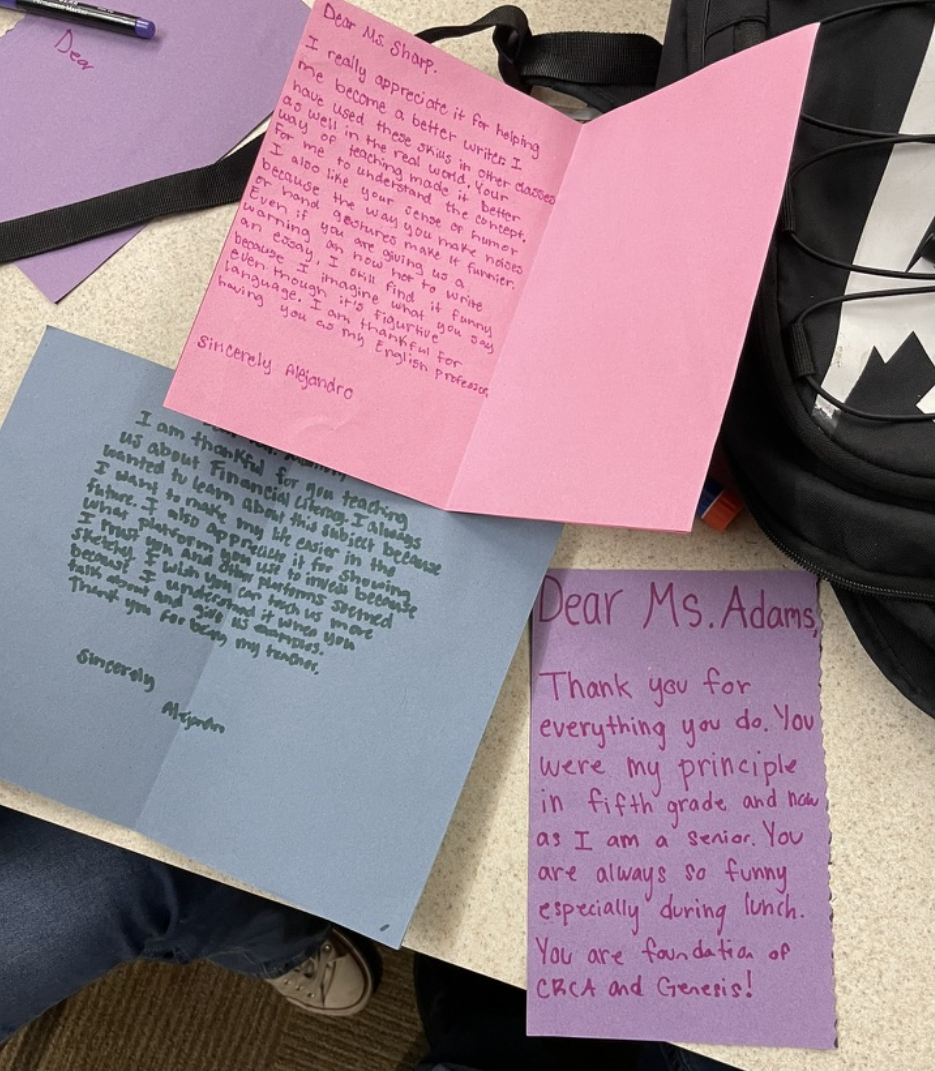 Dear
Dear Ms. Sharp.
I really appreciate it for helping
me become a better writer. I
have used these skills in other classes
as well in the real world. Your
way of teaching made it better
for me to understand the concept.
I also like your sense of humor
because the way you make noises
or hand gestures make it funnier.
Even if you are giving us a
warning on how not to write
an essay, I still find it funny
because I imagine what you say
even though it's figurtive
language. I am thankful for
having you as my English professor.
Sincerely Alejandro
I am thankful for you teaching
us about Financial Literacy. I always
wanted to learn about this subject because
I want to make my life easier in the
future. I also Appreciate it for showing
what platform you use to invest because
I trust you and other platforms seemed
sketchy. I wish you can teach us more
because I understand it when you
talk about and give us examples.
Thank you for being my teacher.
Sincerely
Alejandro
Dear Ms. Adams,
Thank you for
everything you do. You
were my principle
in fifth grade and now
as I am a senior. You
are always so funny
especially during lunch.
You are foundation of
CRCA and Genesis!